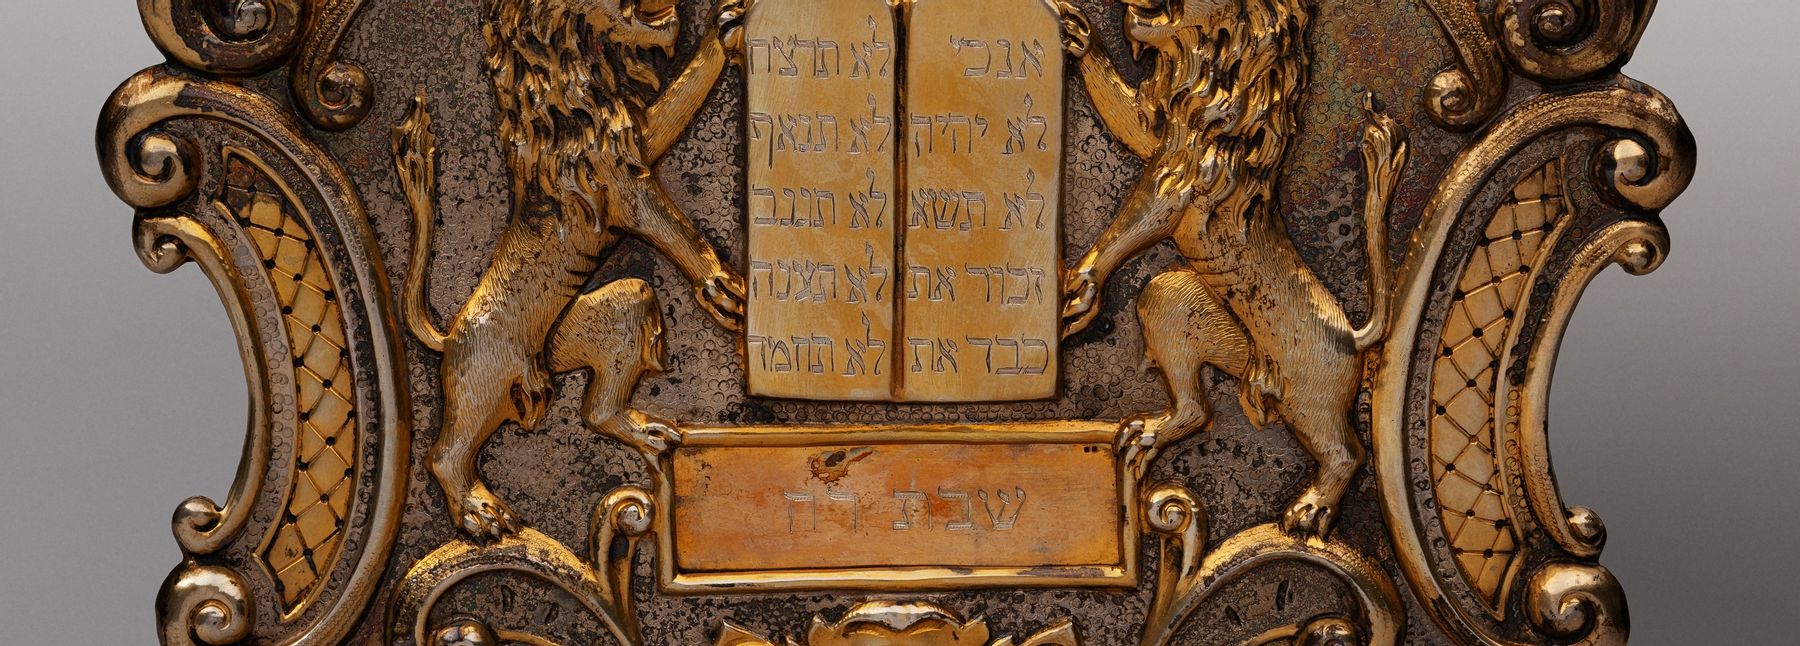 אנכי
לא יהיה
לא תשא
זכור את
כבד את
לא תרצח
לא תנאף
לא תגנב
לא תענה
לא תחמד
שבת רח